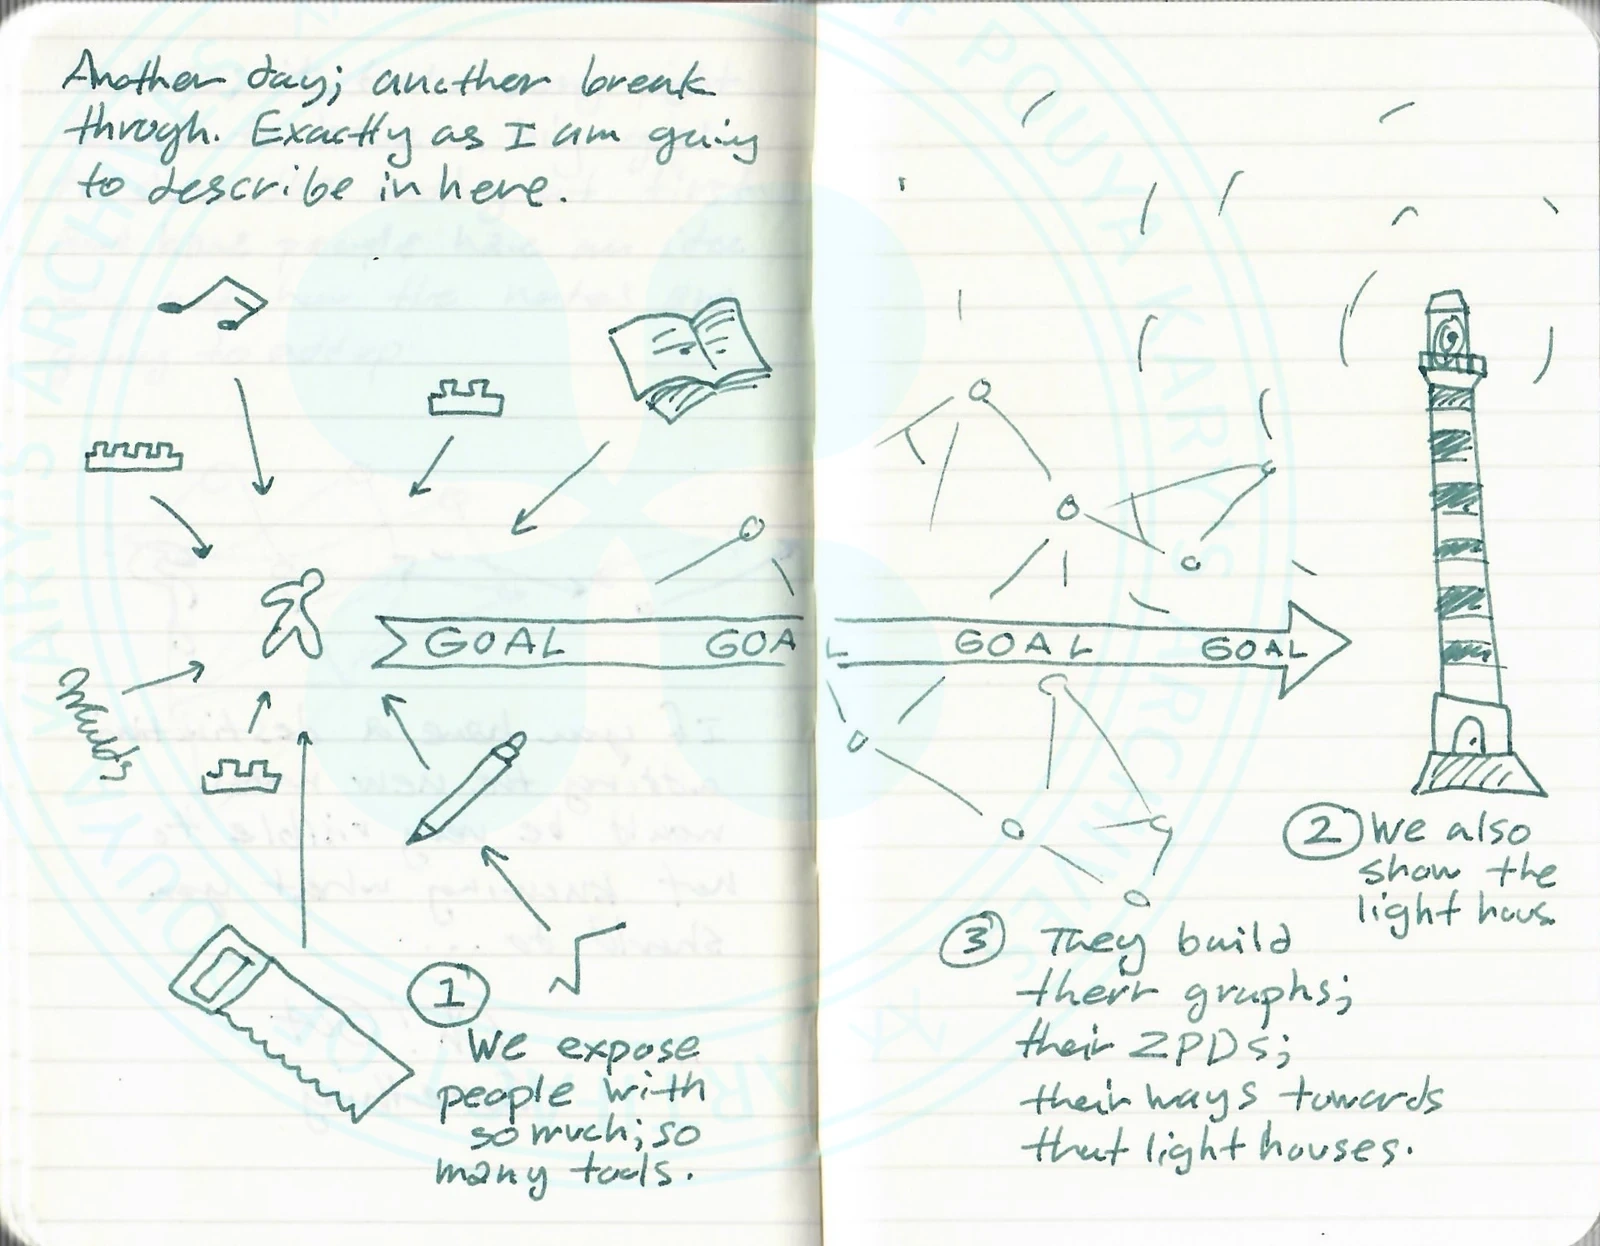 Another day; another break
through. Exactly as I am going
to describe in here.
GOAL GOAL GOAL GOAL
① We expose
people with
so much; so
many tools.
② We also
show the
light hous.
③ They build
their graphs;
their ZPDs;
their ways towards
that light houses.
POUYA KARY'S ARCHIVES